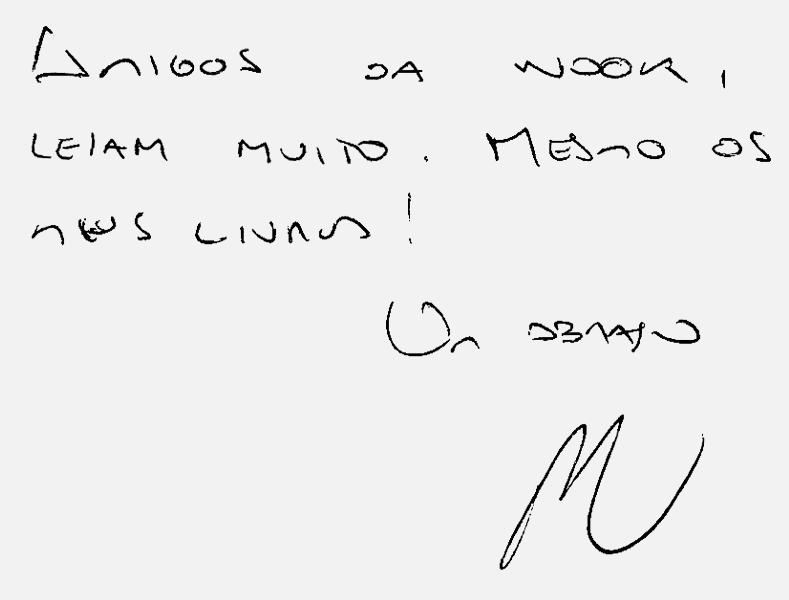 Amigos da WOOK,
LEIAM MUITO. MESMO OS
MEUS LIVROS!
Um abraço